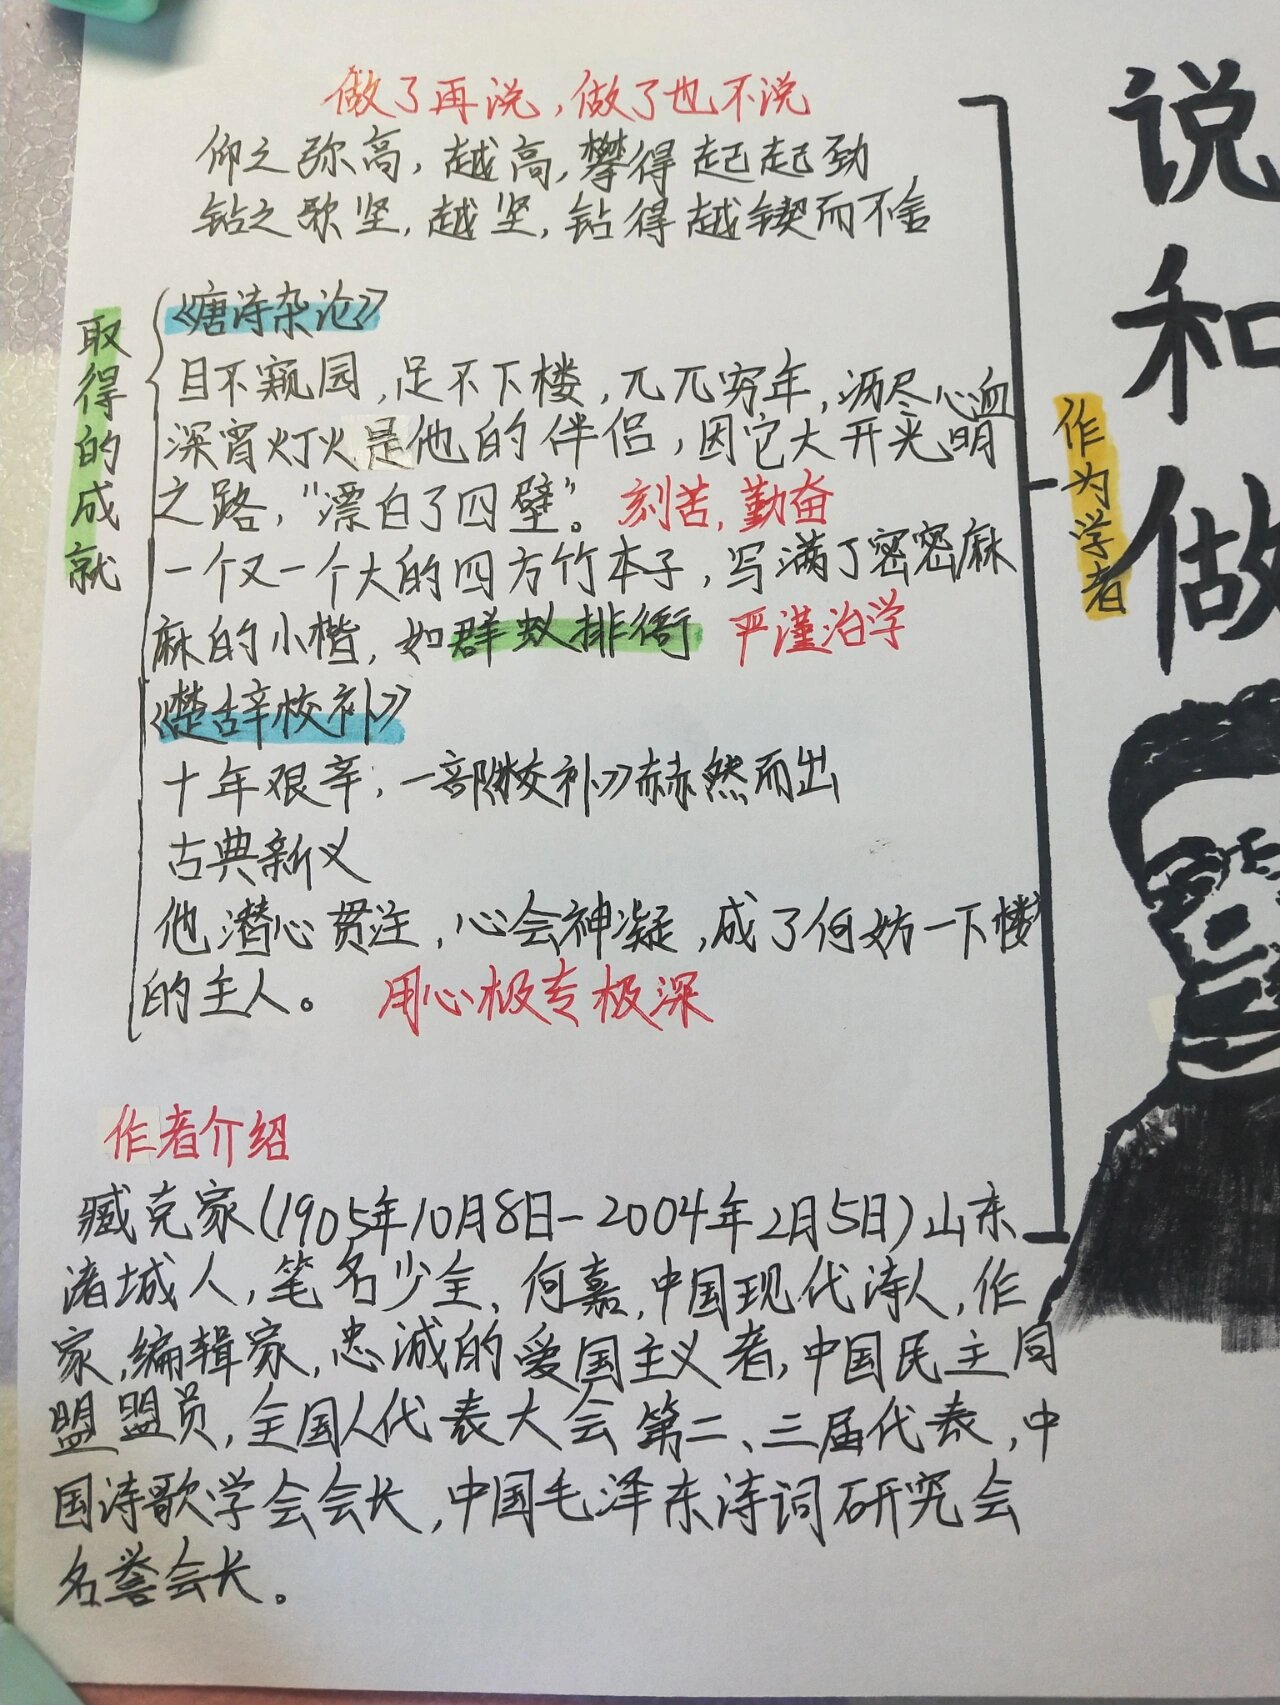 做了再说，做了也不说
仰之弥高，越高，攀得起起劲
钻之欿坚，越坚，钻得越锲而不舍
取得的成就
《唐诗杂论》
目不窥园，足不下楼，兀兀穷年，沥尽心血
深宵灯火是他的伴侣，因它大开光明
之路，“漂白了四壁”。刻苦，勤奋
一个又一个大的四方竹本子，写满了密密麻
麻的小楷，如群蚁排衙 严谨治学
《楚辞校补》
十年艰辛，一部《校补》赫然而出
古典新义
他潜心贯注，心会神凝，成了何妨一下楼
的主人。 用心极专极深
作为学者
说和做
作者介绍
臧克家(1905年10月8日-2004年2月5日)山东
诸城人，笔名少全、何嘉，中国现代诗人，作
家，编辑家，忠诚的爱国主义者，中国民主同
盟盟员，全国人代表大会第二、三届代表，中
国诗歌学会会长，中国毛泽东诗词研究会
名誉会长。